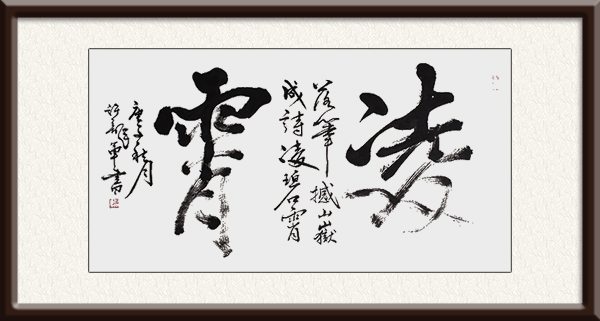 凌
落筆撼山嶽
成詩凌碧霄
霄
庚子秋月
軍書